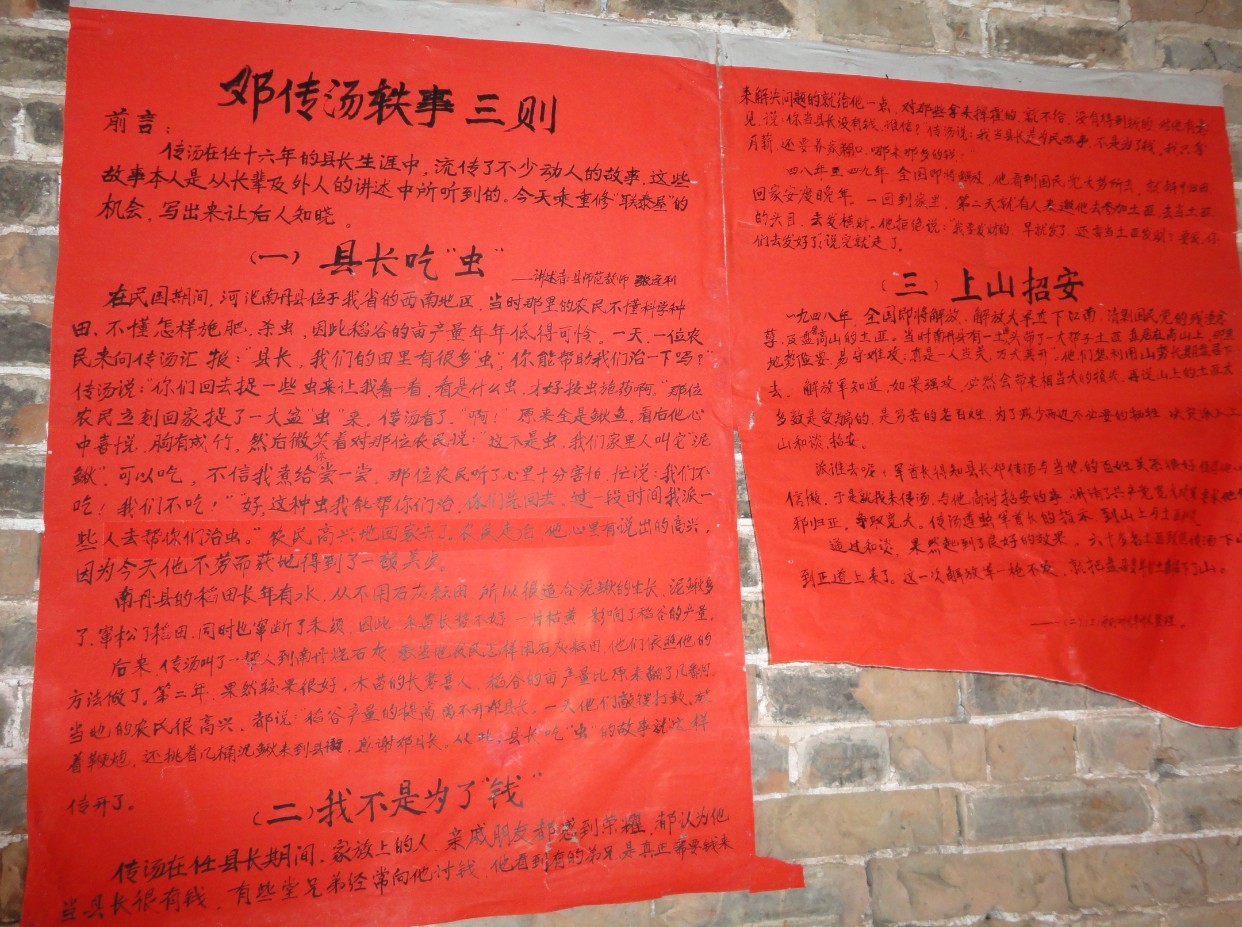 邓传汤轶事三则
前言：
传汤在任十六年的县长生涯中，流传了不少动人的故事，这些
故事本人是从长辈及外人的讲述中所听到的。今天乘重修"联泰屋"的
机会，写出来让后人知晓。
（一）县长吃"虫"
县师范教师
在民国期间，河池南丹县位于我省的西南地区，当时那里的农民不懂科学种
田，不懂怎样施肥、杀虫，因此稻谷的亩产量年年低得可怜。一天，一位农
民来向传汤汇报："县长，我们的田里有很多"虫"，你能帮助我们治一下吗？"
传汤说："你们回去捉一些虫来让我看一看，看是什么虫，才好按虫施药啊。"那位
农民立刻回家捉了一大盆"虫"来，传汤看了，"啊！"原来全是鳅鱼。看后他心
中喜悦，胸有成竹，然后微笑着对那位农民说："这不是虫，我们家里人叫它"泥
鳅"，可以吃，不信我煮给你尝一尝，那位农民听了心里十分害怕，忙说："我们不
吃！我们不吃！""好，这种虫我能帮你们治，你们先回去，过一段时间我派一
些人去帮你们治虫。"农民高兴地回家去了。农民走后，他心里有说出的高兴，
因为今天他不劳而获地得到了一酸美夕。
南丹县的稻田长年有水，从不用石灰耘田，所以很适合泥鳅的生长，泥鳅多
了，窜松了稻田，同时也窜断了禾颈，因此，禾苗长势不好，一片枯黄，影响了稻谷的产量。
后来，传汤叫了一帮人到南丹烧石灰，教当地农民怎样用石灰耘田，他们依照他的
方法做了。第二年，果然较果很好，禾苗的长势喜人，稻谷的亩产量比原来翻了几番。
当地的农民很高兴，都说："稻谷产量的提高离不开邓县长。一天他们敲锣打鼓，放
着鞭炮，还挑着几桶泥鳅来到县衙，感谢邓县长，从此，县长吃"虫"的故事就这样
传开了。
（二）我不是为了"钱"
传汤在任县长期间，家放上的人，亲戚朋友都感到荣耀，都认为他
当县长很有钱，有些堂兄弟经常向他讨钱，他看到有的弟兄是真正需要钱来
来解决问题的就给他一点，对那些拿来挥霍的，就不给，没有得到钱的，对他有意
见，说：你当县长没有钱，谁信？传汤说：我当县长是为民办事，不是为了钱，我只拿
月薪，还要养家糊口，哪来那多的钱。"
四八年至四九年，全国即将解放，他看到国民党大势所去，就解甲归田，
回家安度晚年，一回到家里，第二天就有人来邀他去参加土匪，去当土匪
的头目，去发横财。他拒绝说："我要发财的，早就发了，还需当土匪发财？要发，你
们去发好了"，说完就走了。
（三）上山招安
一九四八年，全国即将解放，解放大军直下江南，清剿国民党的残
及盘高山的土匪。当时南丹县有一土头带了一大帮子土匪，盘居在高山上，那里
地势险要，易守难攻，真是一人当关，万夫莫开"。他们想利用山势长期
去，解放军知道，如果强攻，必然会带来相当大的损失，再说山上的土匪大
多数是受骗的，是穷苦的老百姓，为了减少两边不必要的牺牲，决定派人上
山和谈、招安。
派谁去呢？军首长得知县长邓传汤与当地的百姓关系很好，
信服，于是就找来传汤，与他商讨招安的事，
邪归正，争取宽大。传汤遵照军首长的指示，到山上与土匪
通过和谈，果然起到了良好的效果，六十多名土匪
到正道上来了。这一次解放军一枪不发，